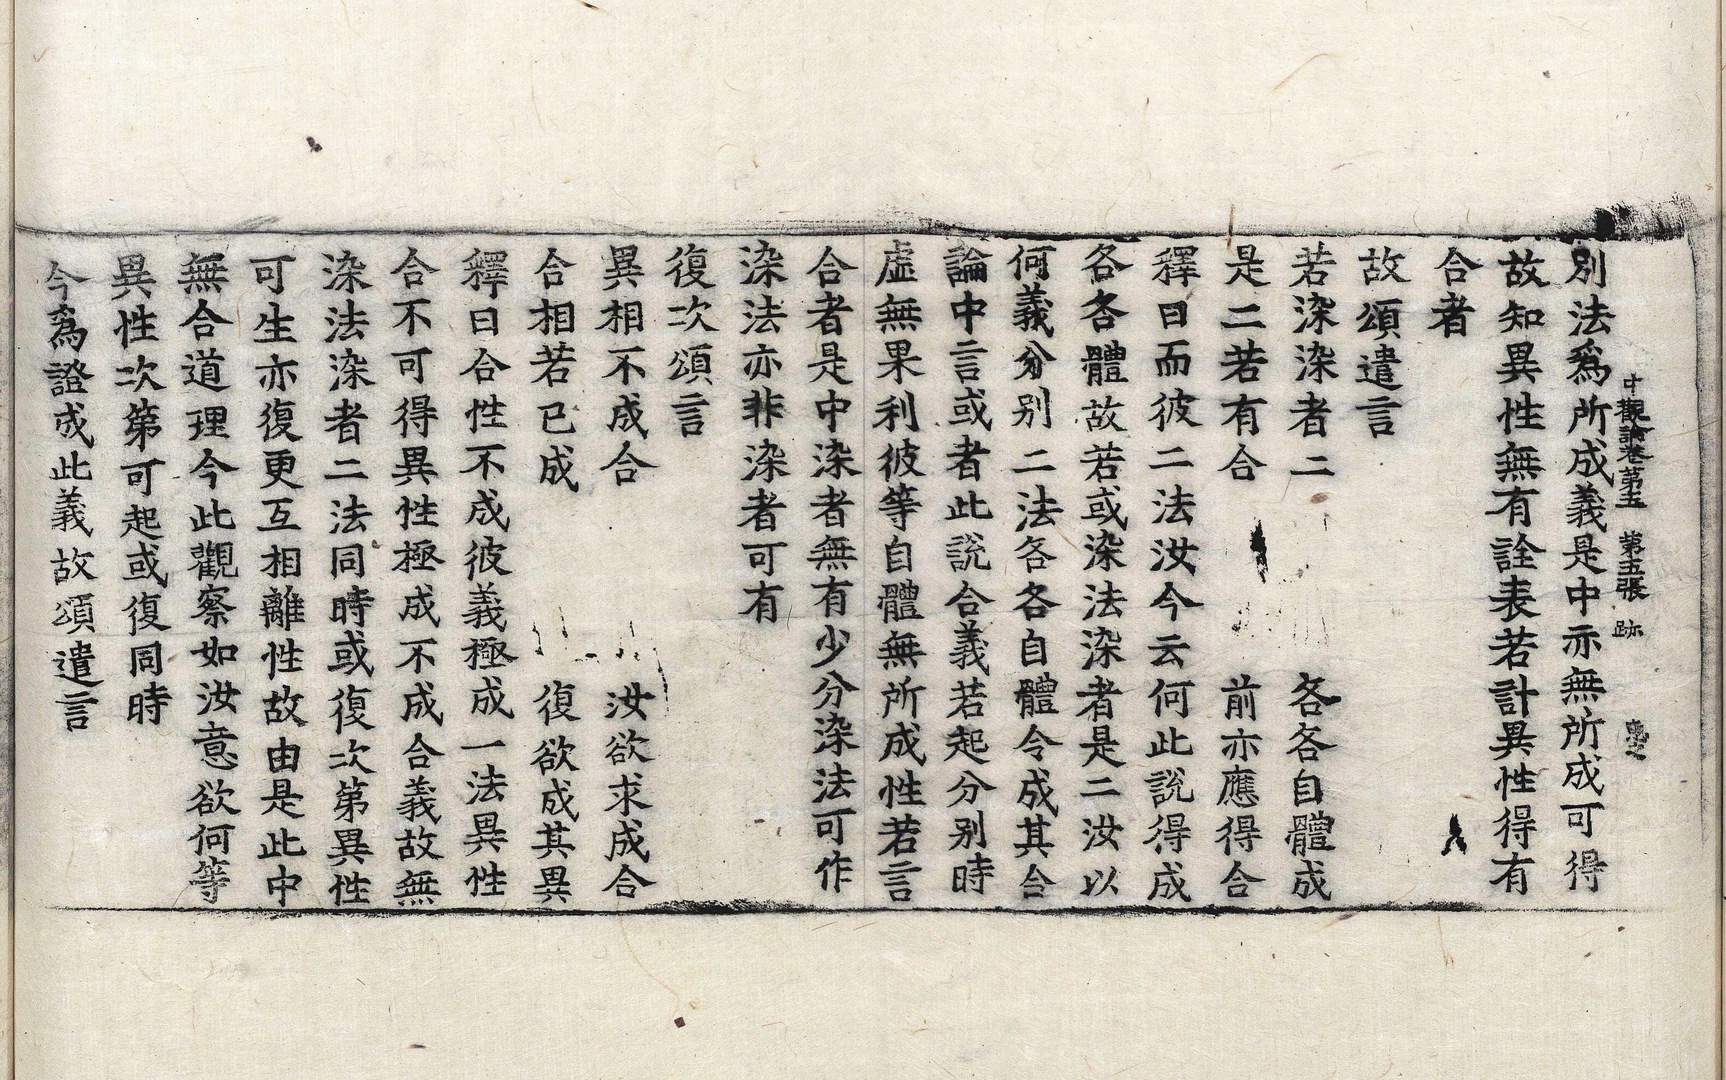 中觀論卷第五 第五張 跡
別法爲所成義是中亦無所成可得
故知異性無有詮表若計異性得有
合者
故頌遣言
若染染者二 各各自體成
是二若有合 前亦應得合
釋曰而彼二法汝今云何此說得成
各各體故若或染法染者是二汝以
何義分別二法各各自體令成其合
論中言或者此說合義若起分别時
虛無果利彼等自體無所成性若言
合者是中染者無有少分染法可作
染法亦非染者可有
復次頌言
異相不成合 汝欲求成合
合相若已成 復欲成其異
釋曰合性不成彼義極成一法異性
合不可得異性極成不成合義故無
染法染者二法同時或復次第異性
可生亦復更互相離性故由是此中
無合道理今此觀察如汝意欲何等
異性次第可起或復同時
今爲證成此義故頌遣言